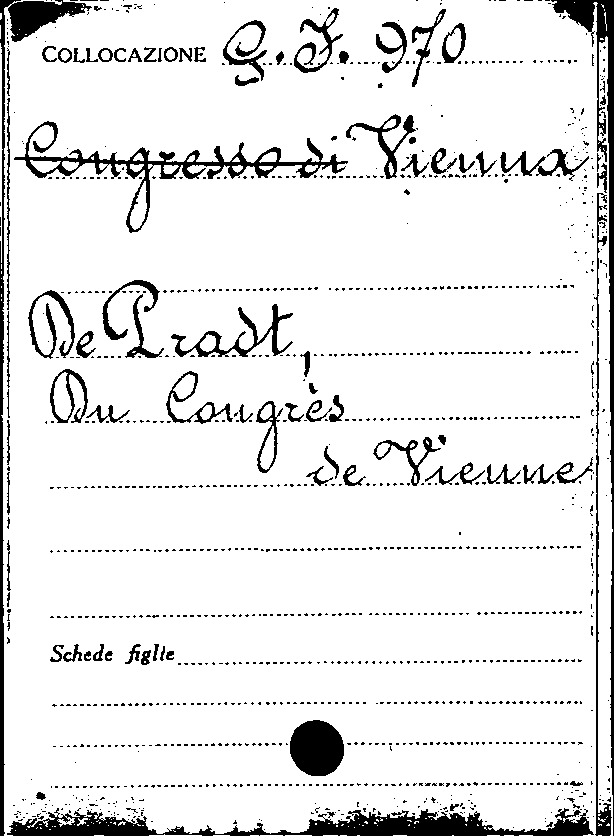 COLLOCAZIONE G. F. 970
Congresso di Vienna
De Pradt,
Du Congrès
de Vienne
Schede figlie